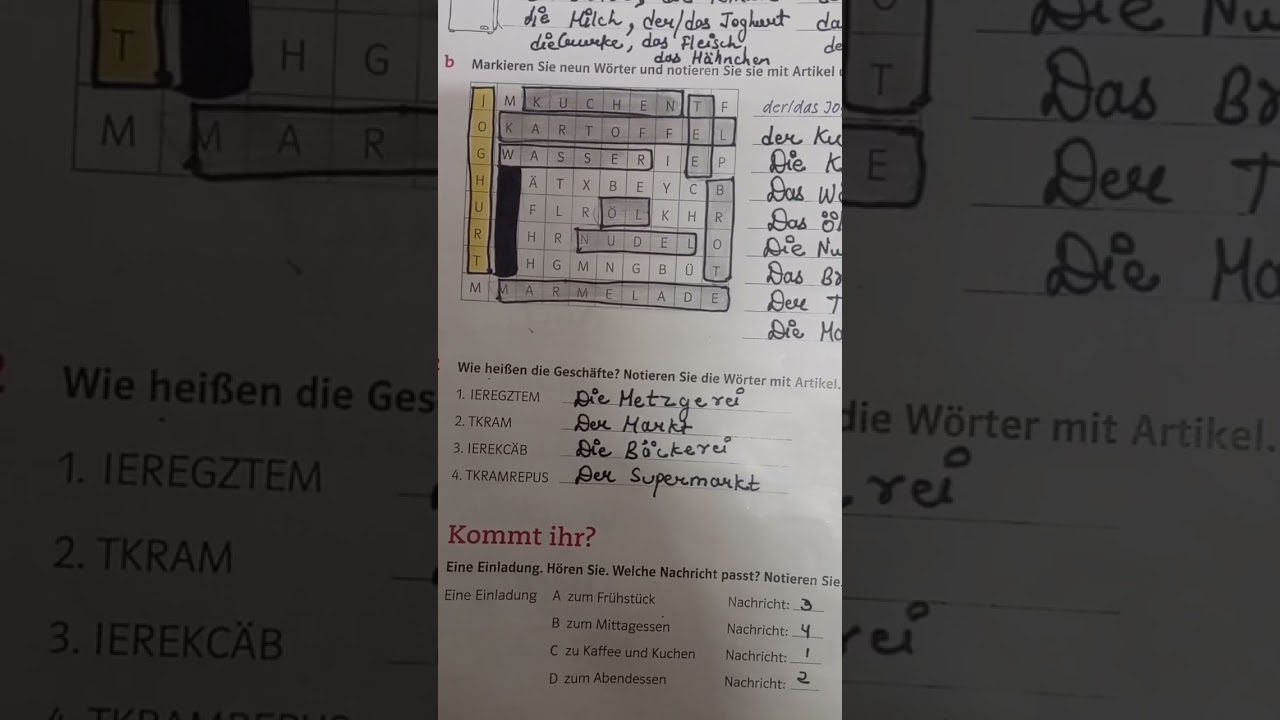 die Milch, der/das Joghurt da
die Gurke, das Fleisch, de
das Hähnchen
b Markieren Sie neun Wörter und notieren Sie sie mit Artikel
J M K U C H E N T F
O K A R T O F F E L der/das Jo
G W A S S E R I E P der Ku
H Ä T X B E Y C B Die K
U F L R Ö L K H R Das Wa
R H R N U D E L O Das Öl
T H G M N G B Ü T Die Nu
M M A R M E L A D E Das Br
Der T
Die Ma
Wie heißen die Geschäfte? Notieren Sie die Wörter mit Artikel.
1. IEREGZTEM Die Metzgerei
2. TKRAM Der Markt
3. IEREKCÄB Die Bäckerei
4. TKRAMREPUS Der Supermarkt
Kommt ihr?
Eine Einladung. Hören Sie. Welche Nachricht passt? Notieren Sie.
Eine Einladung A zum Frühstück Nachricht: 3
B zum Mittagessen Nachricht: 4
C zu Kaffee und Kuchen Nachricht: 1
D zum Abendessen Nachricht: 2